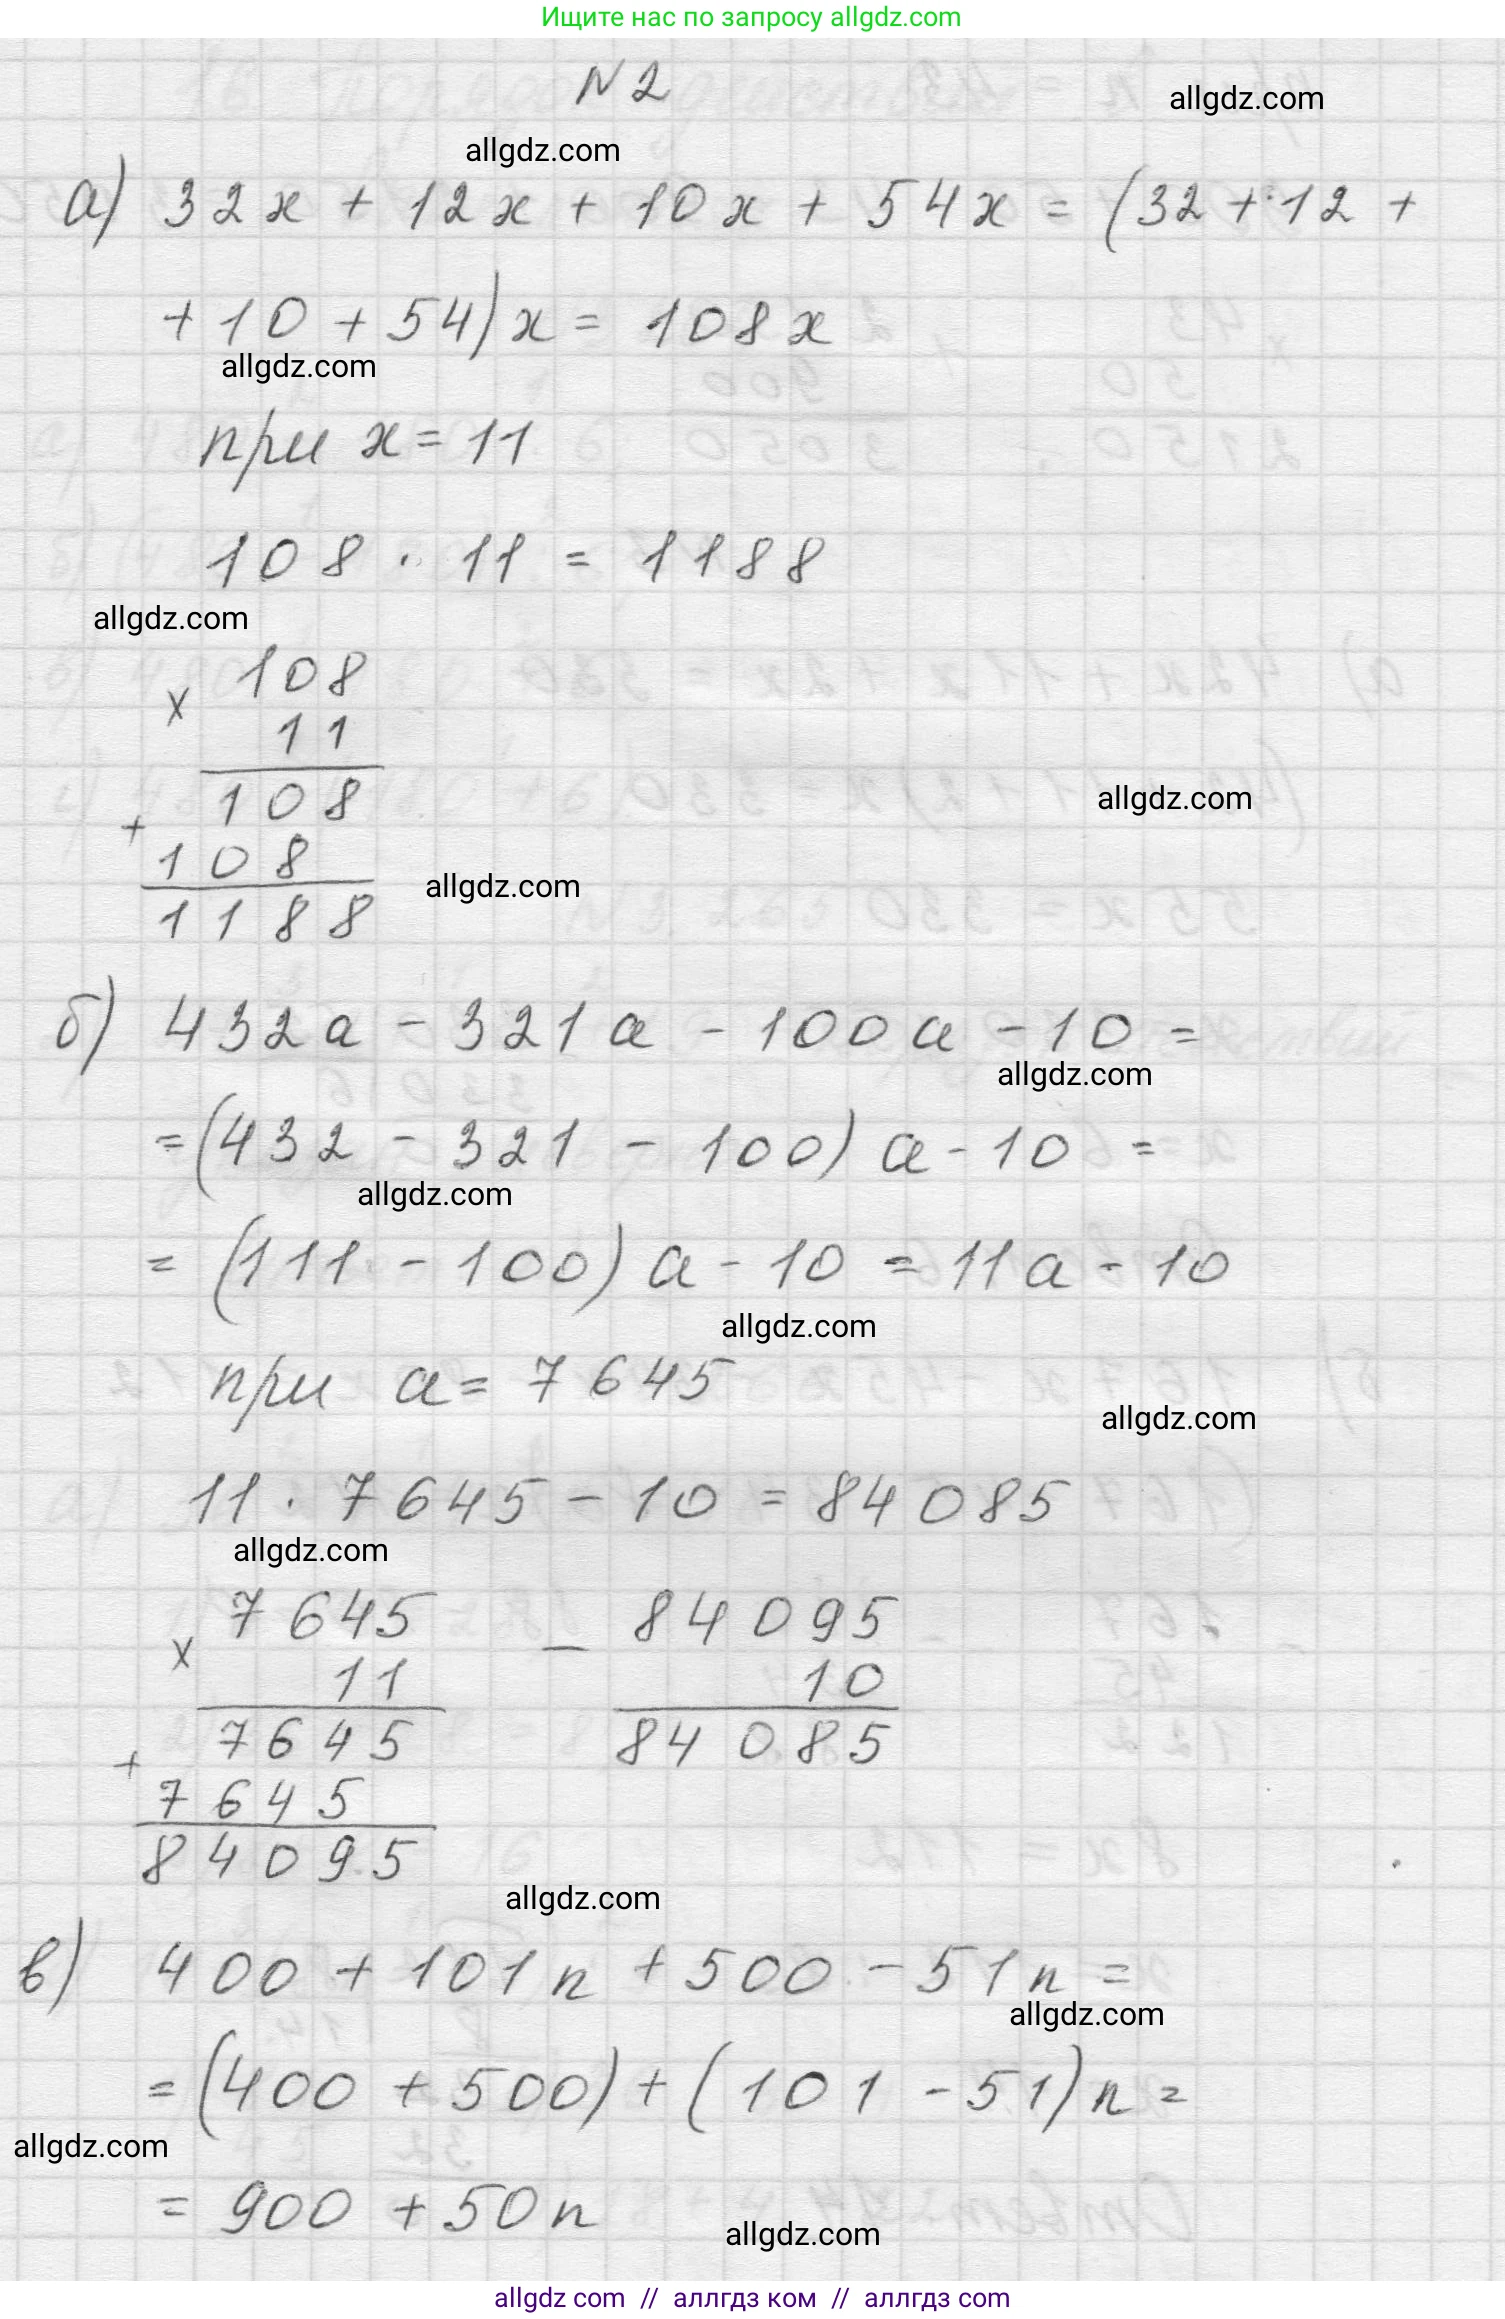 Ищите нас по запросу allgdz.com
N 2
allgdz.com
allgdz.com
а) 32x + 12x + 10x + 54x = (32 + 12 +
+ 10 + 54)x = 108x
allgdz.com
при x = 11
108 · 11 = 1188
allgdz.com
x 108
11
108
allgdz.com
+ 108
allgdz.com
1188
б) 432a - 321a - 100a - 10 =
allgdz.com
= (432 - 321 - 100) a - 10 =
allgdz.com
= (111 - 100) a - 10 = 11a - 10
allgdz.com
при a = 7645
allgdz.com
11 · 7645 - 10 = 84085
allgdz.com
x 7645 - 84095
11 10
7645 84085
+ 7645
84095
allgdz.com
в) 400 + 101n + 500 - 51n =
allgdz.com
= (400 + 500) + (101 - 51)n =
allgdz.com
= 900 + 50n
allgdz.com
allgdz com // аллгдз ком // аллгдз com